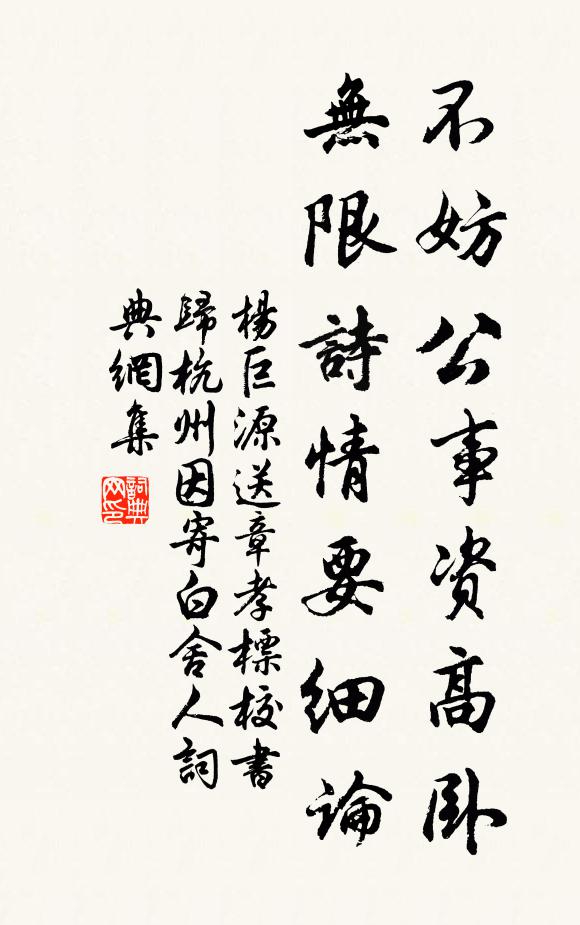 不妨公事資高卧
無限詩情要細論
楊巨源送章孝標校書
歸杭州因寄白舍人詞
典網集
詞典
网印